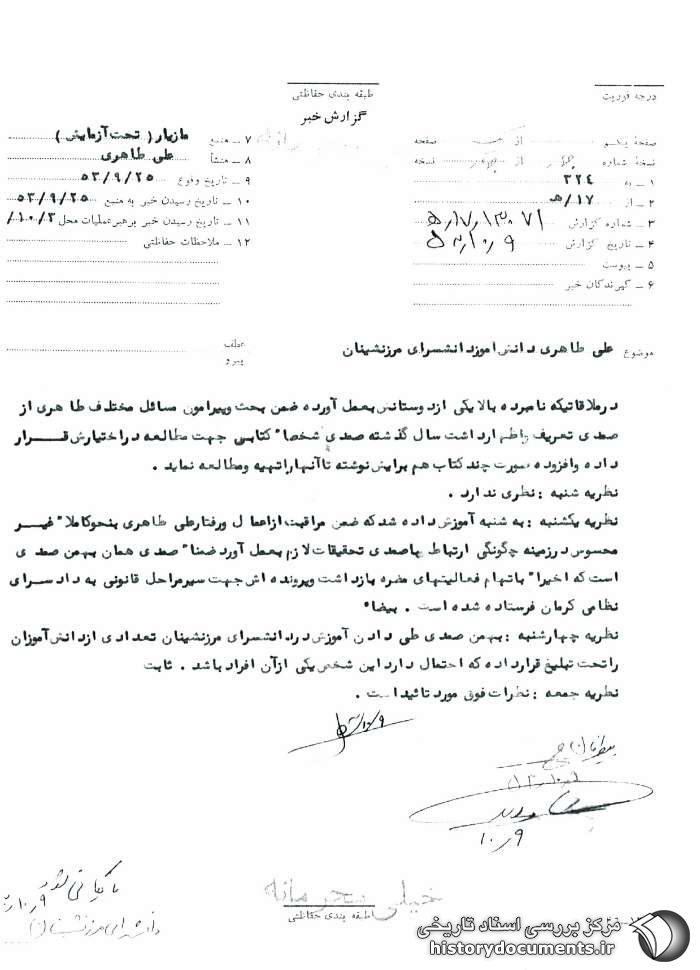 درجه فوریت
طبقه بندی حفاظتی
گزارش خبر
صفحه یکم از یک صفحه
نسخه شماره چهار از چهار نسخه
۱ ـ به ۳۲۴
۲ ـ از ۱۷/هـ
۳ ـ شماره گزارش
۴ ـ تاریخ گزارش
۵ ـ پیوست
۶ ـ گیرندگان خبر
۷ ـ منبع مازیار (تحت آزمایش)
۸ ـ منشأ علی طاهری
۹ ـ تاریخ وقوع ۵۳/۹/۲۵
۱۰ ـ تاریخ رسیدن خبر به منبع ۵۳/۹/۲۵
۱۱ ـ تاریخ رسیدن خبر برهبر عملیات محل ۱۰/۳/
۱۲ ـ ملاحظات حفاظتی
موضوع علی طاهری دانش آموز دانشسرای مرزنشینان
عطف
پیرو
در ملاقاتیکه نامبرده بالا با یکی از دوستانش بعمل آورده ضمن بحث و پیرامون مسائل مختلف طاهری از
صمدی تعریف و اظهار داشت سال گذشته صمدی شخصا" کتابی جهت مطالعه در اختیارش قرار
داده و افزوده صورت چند کتاب هم برایش نوشته تا آنها را تهیه و مطالعه نماید .
نظریه شنبه : نظری ندارد .
نظریه یکشنبه : به شنبه آموزش داده شد که ضمن مراقبت از اعمال و رفتار علی طاهری بنحو کاملا" غیر
محسوس در زمینه چگونگی ارتباط با صمدی تحقیقات لازم بعمل آورد ضمنا" صمدی همان بهمن صمدی
است که اخیرا" باتهام فعالیتهای مضره بازداشت و پرونده اش جهت سیر مراحل قانونی به دادسرای
نظامی کرمان فرستاده شده است . بیضاء
نظریه چهارشنبه : بهمن صمدی طی دادن آموزش در دانشسرای مرزنشینان تعدادی از دانش آموزان
را تحت تبلیغ قرار داده که احتمال دارد این شخص یکی از آن افراد باشد . ثابت
نظریه جمعه : نظرات فوق مورد تائید است .
۱۰/۹
بایگانی شود
۱۰/۹
دانشسرای مرزنشینان
خیلی محرمانه
طبقه بندی حفاظتی
مرکز بررسی اسناد تاریخی
historydocuments.ir